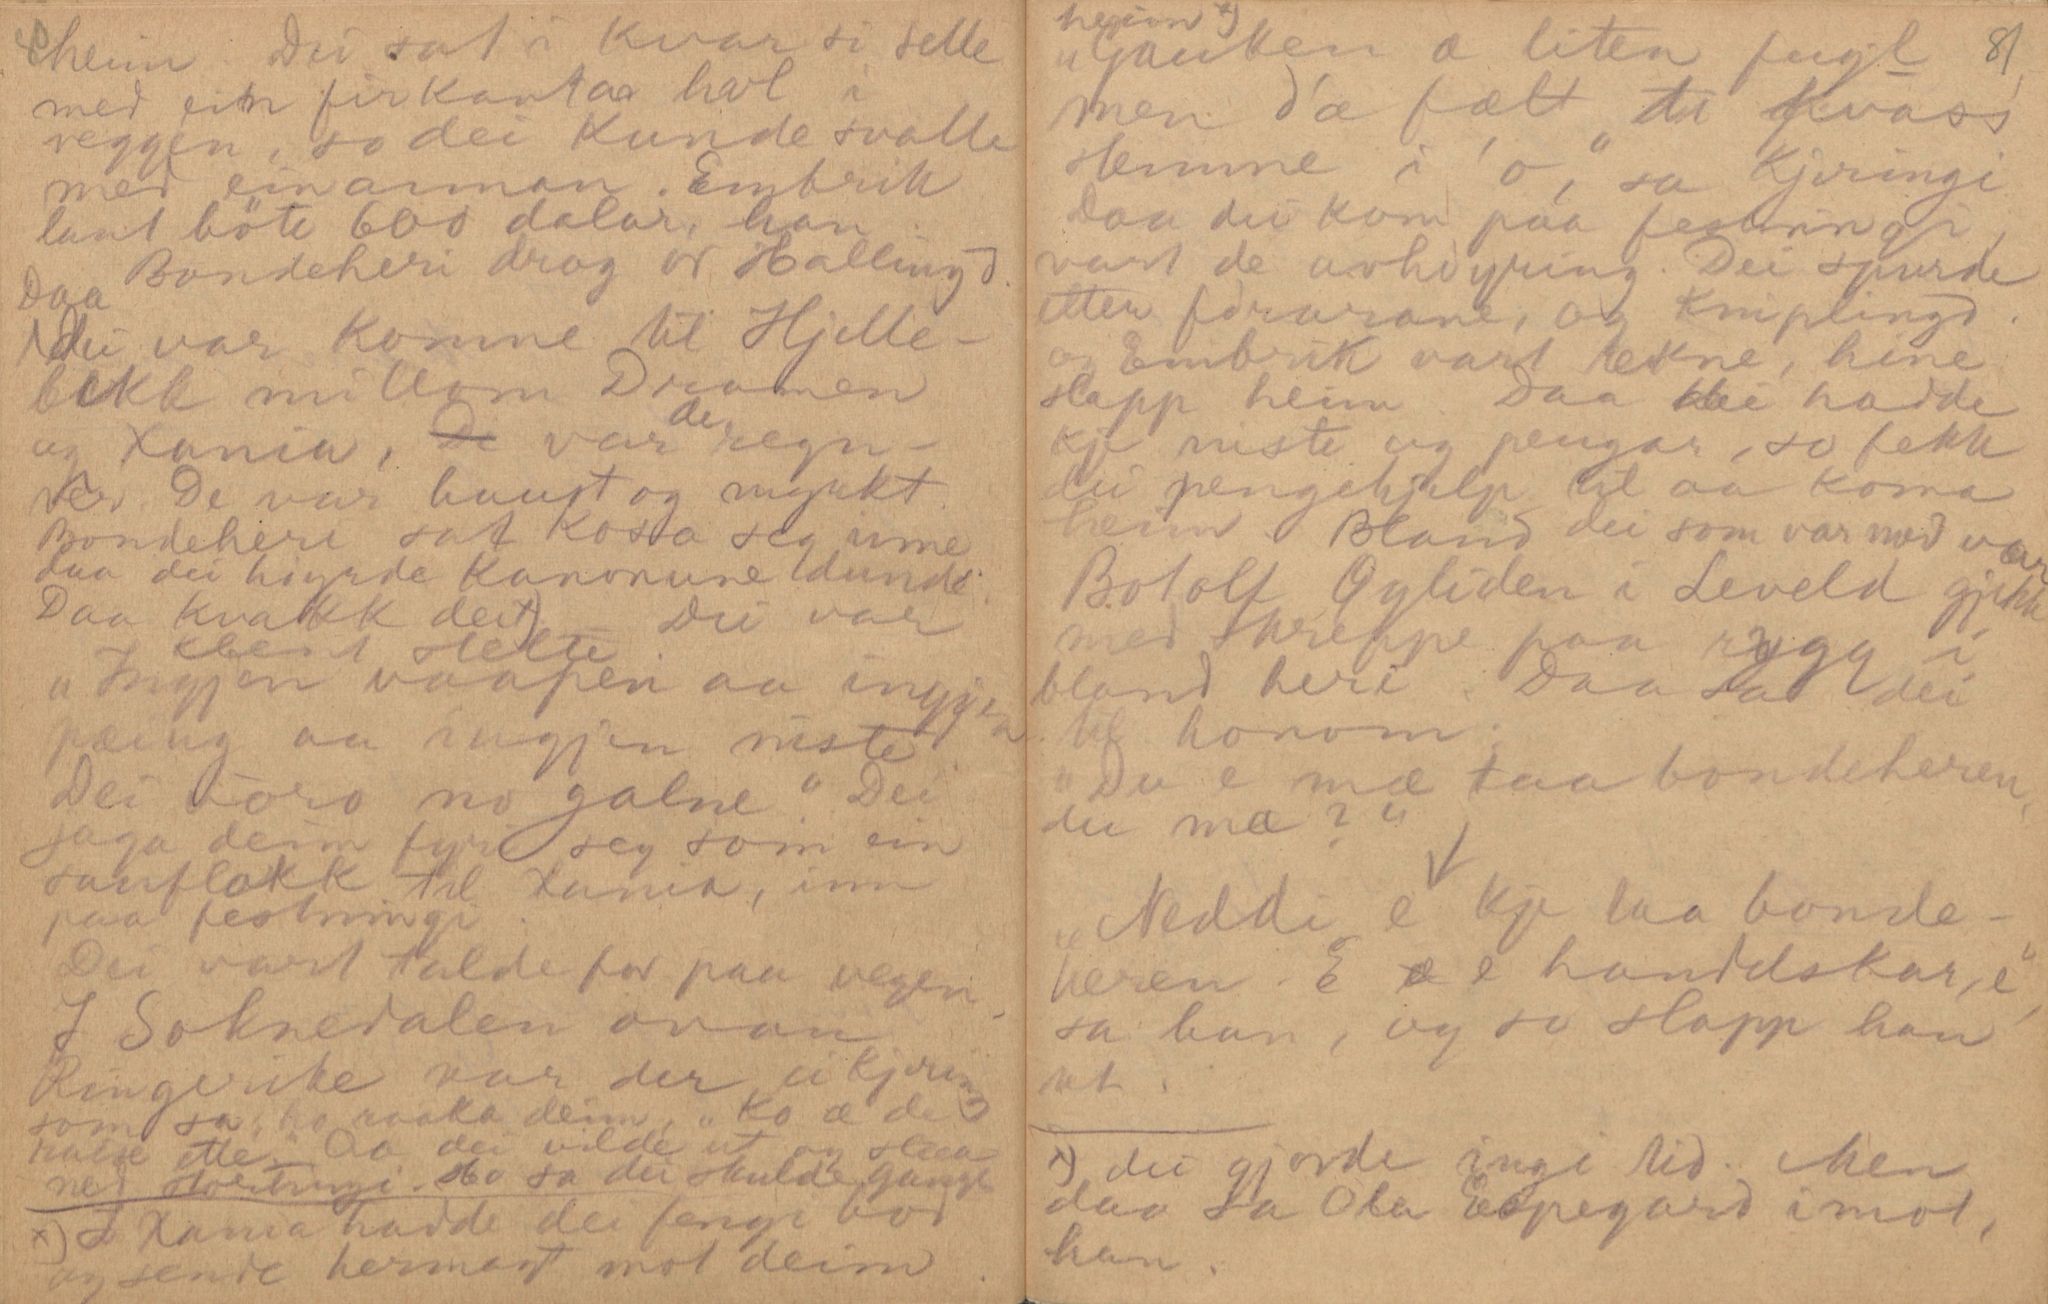 heim. Dei sat i kvar si selle
med ein firkanta hol i
veggen, so dei kunde svalle
med einannan. Embrik
laut böte 600 dalar, han.
Bondeheri drog or Hallingd.
Daa
dei var komne til Hjelle-
bekk millom Dramen
og Xania, var de regn-
ver. De var haust og mykt.
Bondeheri sat kosa seg inne
daa dei höyrde kanonune dunde.
Daa kvakk dei x) Dei var
"Ingjen vaapen aa ingjen
pæing aa ingjen niste
Dei voro no galne" Dei
jaga deim fyri seg som ein
sauflokk til Xania, inn
paa festningi.
Dei vart talde for paa vegen.
I Soknedalen ovan
Ringerike var der ei kjering
som sa, ho raaka deim, "Ko æ de
etter." Aa dei vilde ut og slaa
ned stortingi. Ho sa dei skulde gange
x) I Xania hadde dei fenge bod
og sende hermagt mot deim.
heim x) 81
"Gauken æ liten fugl
men d'æ fælt te kvass
stemme i 'o," sa kjeringi
Daa dei kom paa festningi,
vart de avhöyring. Dei spurde
etter förarane, og Kniplingd.
og Embrik vart tekne, hine
slapp heim. Daa dei hadde
kje niste og pengar, so fekk
dei pengehjelp til aa koma
heim. Bland dei som var med var
Botolf Gyliden i Leveld gjekk
med skreppe paa rygg i
bland heri. Daa sa dei
til honom:
"Du e mæ taa bondeheren,
du mæ?"
"Neddi e kje taa bonde-
heren. E e handdskar, e"
sa han, og so slapp han
ut.
x) dei gjorde ingi tid. Men
daa sa Ola Espegard imot,
han.